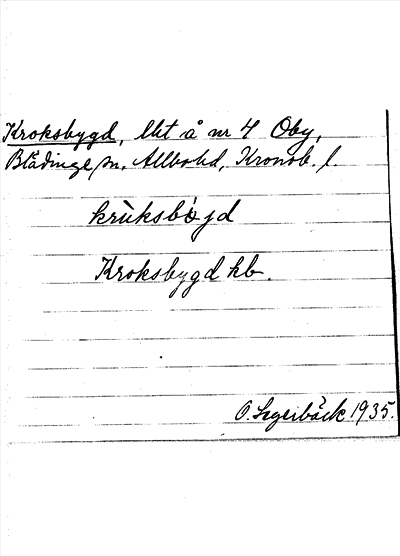 Kroksbygd, lht å nr 4 Oby,
Blädinge sn. Allbo hd, Kronob. l.
krùksbýgd
Kroksbygd kb.
O. Segerbäck 1935.